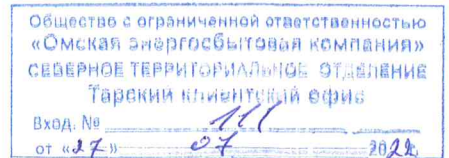 Общество с ограниченной ответственностью
«Омская энергосбытовая компания»
СЕВЕРНОЕ ТЕРРИТОРИАЛЬНОЕ ОТДЕЛЕНИЕ
Тарский клиентский офис
Вход. № 111
от «27» 07 2022